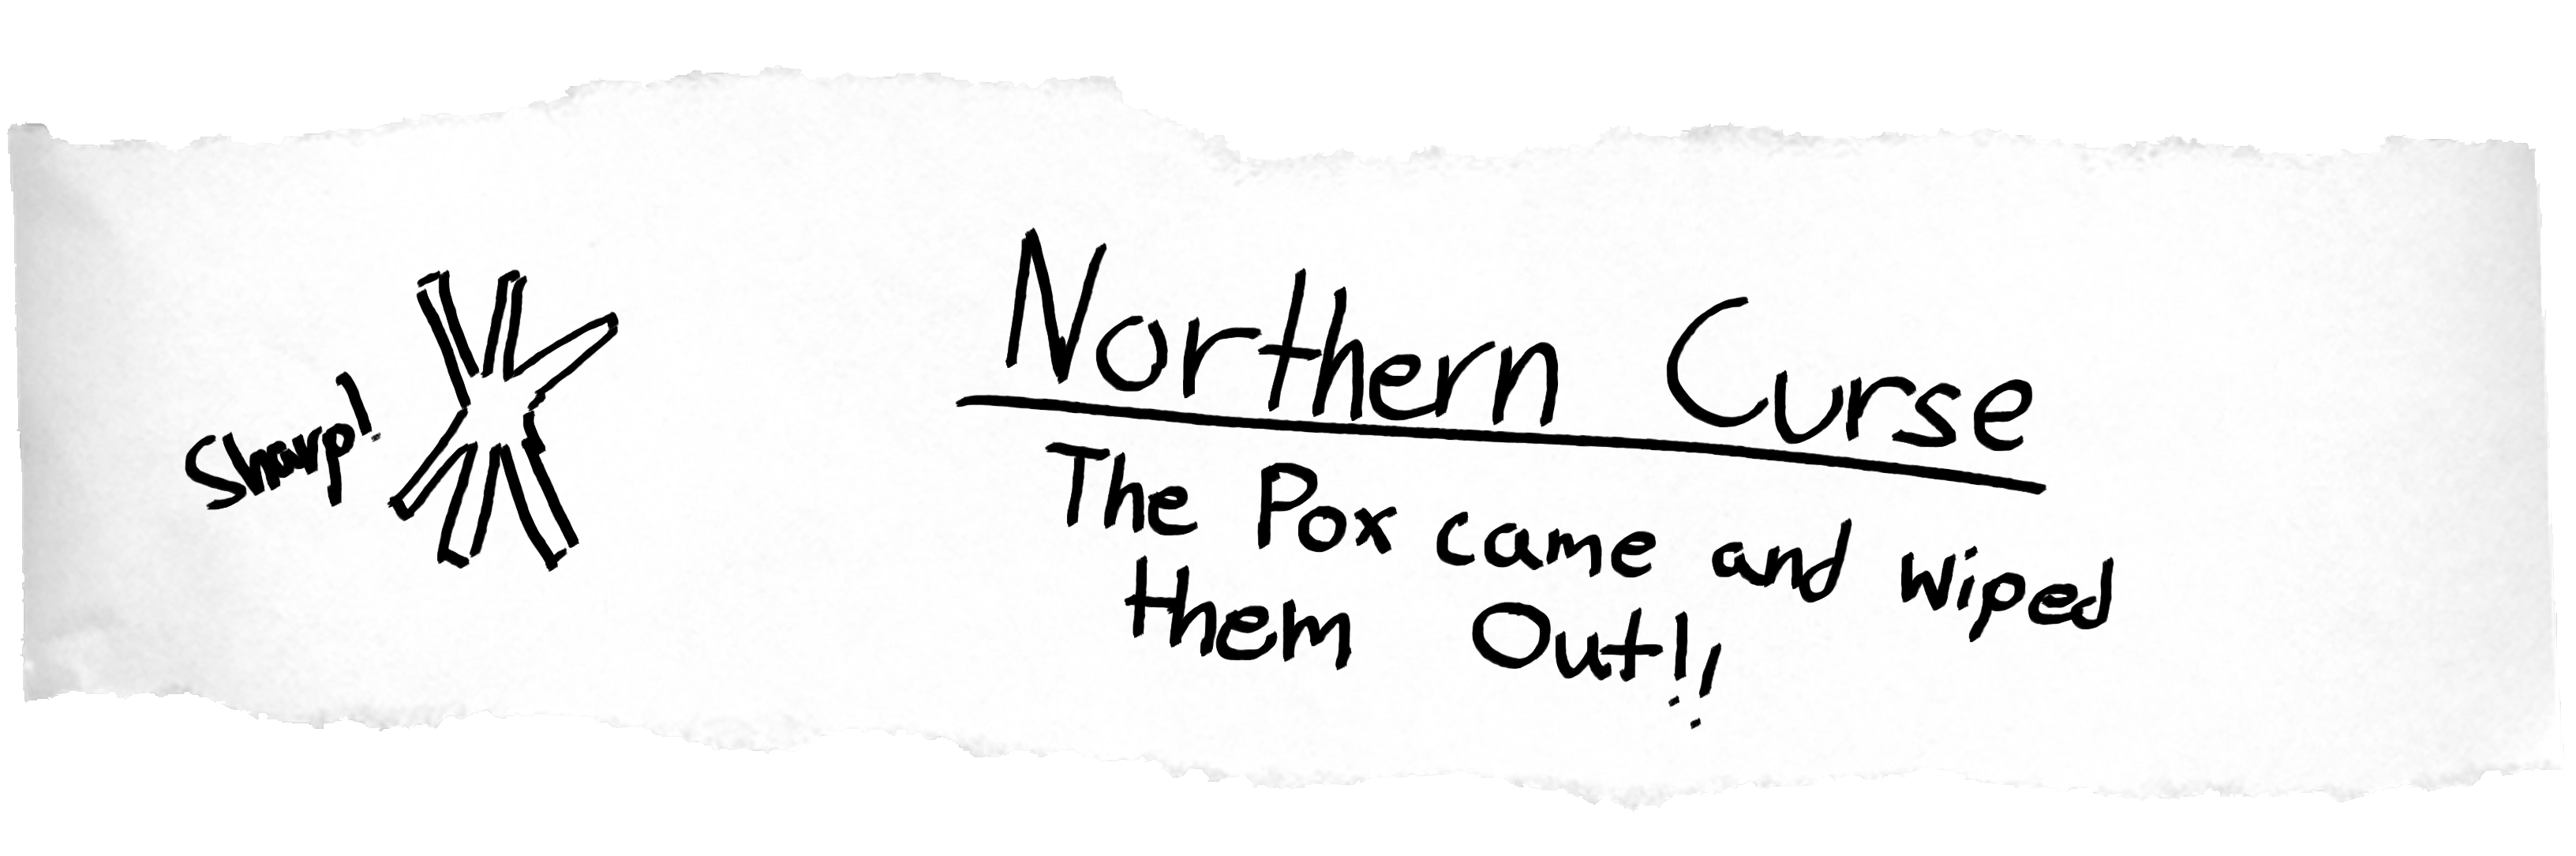 Sharp!
Northern Curse
The Pox came and wiped
them Out!!